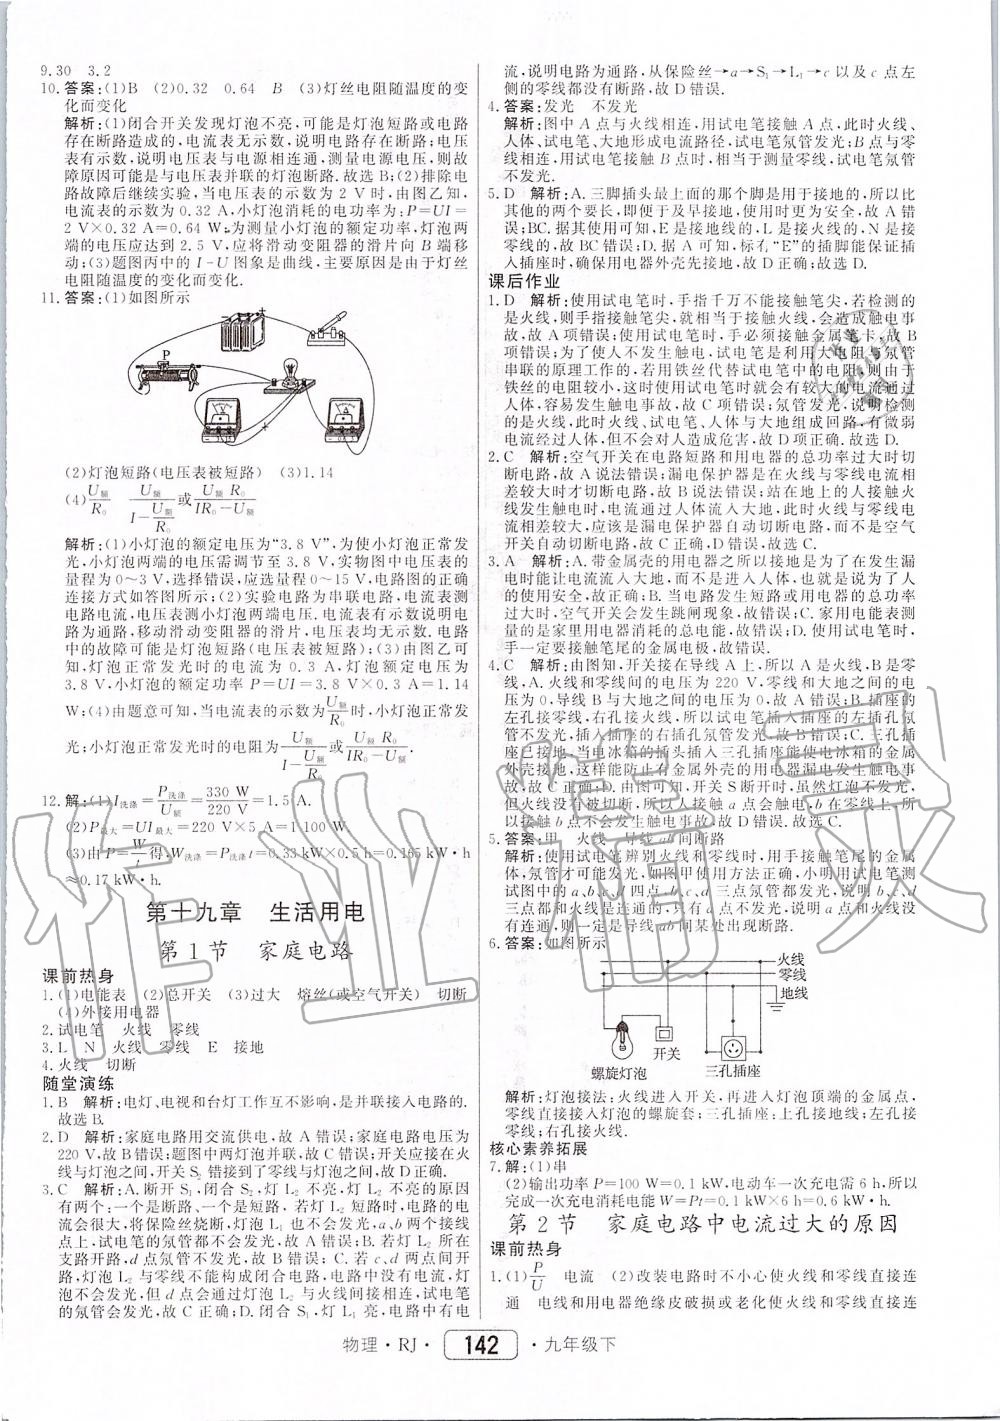 9.30 3.2
10.答案:(1)B (2)0.32 0.64 B (3)灯丝电阻随温度的变
化而变化
解析:(1)闭合开关发现灯泡不亮,可能是灯泡短路或电路
存在断路造成的,电流表无示数,说明电路存在断路;电压
表有示数,说明电压表与电源相连通,测量电源电压,则故
障原因可能是与电压表并联的灯泡断路.故选B;(2)排除电
路故障后继续实验,当电压表的示数为2 V时,由图乙知,
电流表的示数为0.32 A,小灯泡消耗的电功率为:P=UI=
2 V×0.32 A=0.64 W;为测量小灯泡的额定功率,灯泡两
端的电压应达到2.5 V,应将滑动变阻器的滑片向B端移
动;(3)题图丙中的I-U图象是曲线,主要原因是由于灯丝
电阻随温度的变化而变化.
11.答案:(1)如图所示
P
(2)灯泡短路(电压表被短路) (3)1.14
(4)U额/R0 U额/(I-U额/R0)或U额R0/(IR0-U额)
解析:(1)小灯泡的额定电压为“3.8 V”,为使小灯泡正常发
光,小灯泡两端的电压需调节至3.8 V,实物图中电压表的
量程为0~3 V,选择错误,应选量程0~15 V,电路图的正确
连接方式如答图所示;(2)实验电路为串联电路,电流表测
电路电流,电压表测小灯泡两端电压.电流表有示数说明电
路为通路,移动滑动变阻器的滑片,电压表均无示数.电路
中的故障可能是灯泡短路(电压表被短路);(3)由图乙可
知,灯泡正常发光时的电流为0.3 A,灯泡的额定电压为
3.8 V,小灯泡的额定功率P=UI=3.8 V×0.3 A=1.14
W;(4)由题意可知,当电流表的示数为U额/R0时,小灯泡正常发
光;小灯泡正常发光时的电阻为U额/(I-U额/R0)或U额R0/(IR0-U额).
12.解:(1)I洗涤=P洗涤/U额=330 W/220 V=1.5 A.
(2)P最大=UI最大=220 V×5 A=1 100 W.
(3)由P=W/t得,W洗涤=P洗涤t=0.33 kW×0.5 h=0.165 kW·h
≈0.17 kW·h.
第十九章 生活用电
第1节 家庭电路
课前热身
1.(1)电能表 (2)总开关 (3)过大 熔丝(或空气开关) 切断
(4)外接用电器
2.试电笔 火线 零线
3.L N 火线 零线 E 接地
4.火线 切断
随堂演练
1.B 解析:电灯、电视和台灯工作互不影响,是并联接入电路的.
故选B.
2.D 解析:家庭电路用交流供电,故A错误;家庭电路电压为
220 V,故B错误;题图中两灯并联,故C错误;开关应接在火
线与灯泡之间,开关S2错接到了零线与灯泡之间,故选D.
3.C 解析:A.断开S1,闭合S2,灯L2不亮,灯L2不亮的原因
有两个:一个是断路、一个是短路.若灯L2短路,电路的电
流会很大,将保险丝烧断,灯泡L1也不会发光,a、b两个接线
点上,试电笔的氖管都不会发光,故A错误;B.若灯L2所在
支路开路,d点氖管不发光,故B错误;C.若c、d两点间开
路,灯泡L2与零线不能构成闭合电路,灯泡L2没有电流,灯
泡不会发光.但d点会通过灯泡L2与火线间接相连,试电笔
的氖管会发光,故C正确;D.闭合S1,灯L1亮,电路中有电
流,说明电路为通路,从保险丝→a→S1→L1→c以及c点左
侧的零线都没有断路,故D错误.
4.答案:发光 不发光
解析:图中A点与火线相连,用试电笔接触A点,此时火线、
人体、试电笔、大地形成电流路径,试电笔氖管发光;B点与零
线相连,用试电笔接触B点时,相当于测量零线,试电笔氖管
不发光.
5.D 解析:A.三脚插头最上面的那个脚是用于接地的,所以比
其他的两个要长,即便于及早接地,使用时更为安全,故A错
误;BC.据其使用可知,E是接地线的,L是接火线的,N是接
零线的,故BC错误;D.据A可知,标有“E”的插脚能保证插
入插座时,确保用电器外壳先接地,故D正确.故选D.
课后作业
1.D 解析:使用试电笔时,手指千万不能接触笔尖,若检测的
是火线,则手指接触笔尖,就相当于接触火线,会造成触电事
故,故A项错误;使用试电笔时,手必须接触金属笔卡,故B
项错误;为了使人不发生触电,试电笔是利用大电阻与氖管
串联的原理工作的,若用铁丝代替试电笔中的电阻,则由于
铁丝的电阻较小,这时使用试电笔时就会有较大的电流通过
人体,容易发生触电事故,故C项错误;氖管发光,说明检测
的是火线,此时火线、试电笔、人体与大地组成回路,有微弱
的电流通过人体,故D项正确.故选D.
2.C 解析:空气开关在电路短路和用电器的总功率过大时切
断电路,故A说法错误;漏电保护器是在火线与零线电流相
差较大时才切断电路,故B说法错误;站在地上的人接触火
线发生触电时,可能大量电流流入大地,此时火线与零线电
流相差较大,应该是漏电保护器自动切断电路,而不是空气
开关自动切断电路,故C说法正确,D说法错误.故选C.
3.A 解析:A.带金属壳的用电器之所以接地是为了在发生漏
电时能让电流流入大地,而不是经过人体,这样做就是为了人
的使用安全,故正确;B.当电路发生短路或用电器的总功率
过大时,空气开关会发生跳闸现象,故错误;C.家用电能表测
量的是家里用电器消耗的总电能,故错误;D.使用试电笔时,
手一定要接触笔尾的金属电极,故错误.
4.C 解析:由图知,开关接在导线A上,所以A是火线,B是零
线,A.火线和零线间的电压为220 V,零线和大地之间的电压
为0,导线B与大地之间的电压为0,故A错误;B.插座的
左孔接零线,右孔接火线,所以试电笔插入插座的左孔氖
管不发光,插入右孔氖管发光,故B错误;C.三孔插座的上
孔接地,当电冰箱的插头插入三孔插座能使电冰箱的金属
外壳接地,这样能防止有金属外壳的用电器漏电发生触电事
故,故C正确;D.由图可知,当开关S断开时,虽然灯泡不发光,
但火线没有被切断,所以人接触a点会触电,b在零线上,所
以人接触b点不会发生触电事故,故D错误.故选C.
5.答案:甲 火线 导线ab间断路
解析:使用试电笔辨别火线和零线时,用手接触笔尾的金属
体,氖管才可能发光,如图甲使用方法正确.小明用试电笔测
试图中的a、b、c、d四点,b、c、d三点氖管都发光,说明b、c、d
三点都和火线是连通的,只有a点不发光,说明a和火线没
有连通,则一定是导线ab间某处出现断路.
6.答案:如图所示
火线
零线
地线
螺旋灯泡 开关 三孔插座
解析:灯泡接法:火线进入开关,再进入灯泡顶端的金属点,
零线直接接入灯泡的螺旋套;三孔插座:上孔接地线;左孔接
零线;右孔接火线.
核心素养拓展
7.解:(1)串
(2)输出功率P=100 W=0.1 kW,电动车一次充电需6 h,所以
完成一次充电消耗电能W=Pt=0.1 kW×6 h=0.6 kW·h.
第2节 家庭电路中电流过大的原因
课前热身
1.(1)P/U 电流 (2)改装电路时不小心使火线和零线直接连
通 电线和用电器绝缘皮破损或老化使火线和零线直接连
物理·RJ· 142 ·九年级下
作业精灵